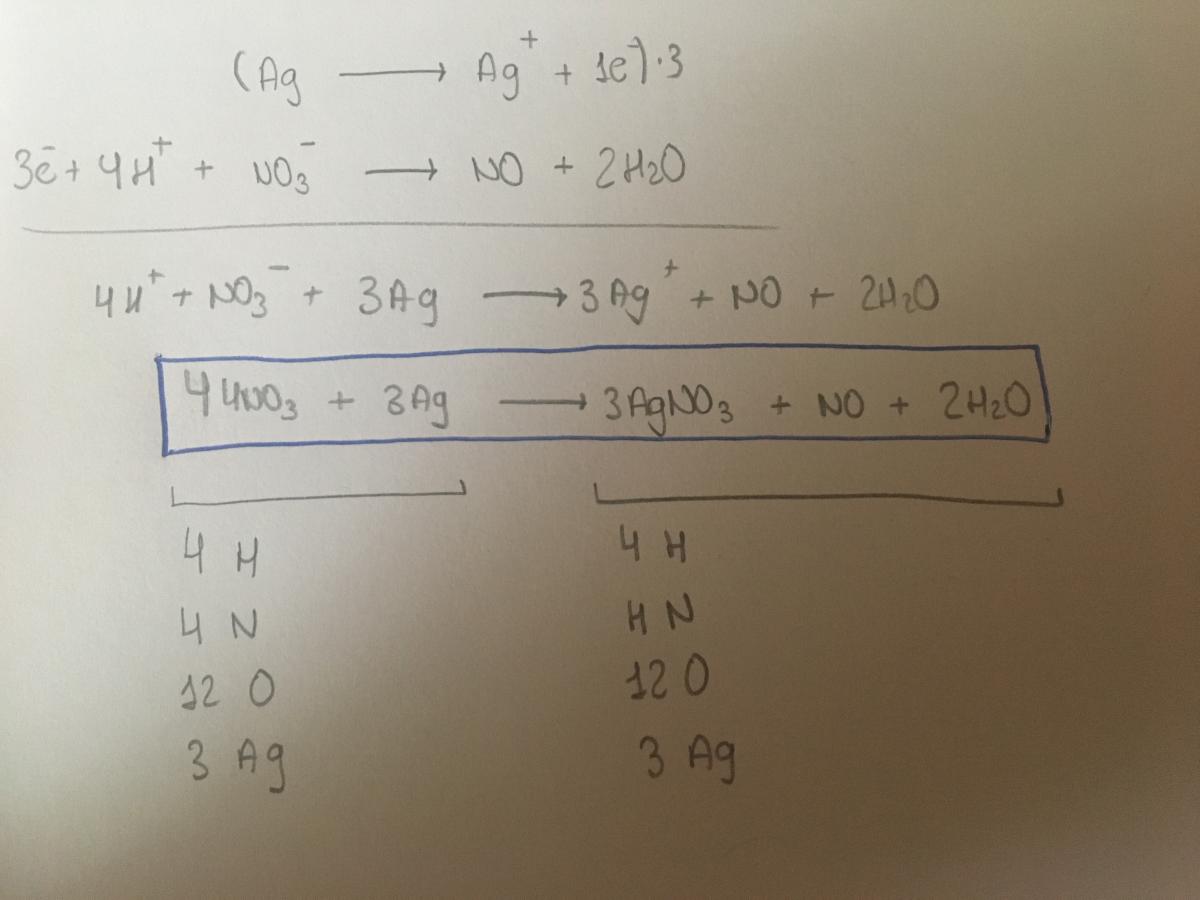 (Ag ⟶ Ag⁺ + 1e⁻)·3
3e⁻ + 4H⁺ + NO₃⁻ ⟶ NO + 2H₂O
4H⁺ + NO₃⁻ + 3Ag ⟶ 3Ag⁺ + NO + 2H₂O
4HNO₃ + 3Ag ⟶ 3AgNO₃ + NO + 2H₂O
4 H 4 H
4 N 4 N
12 O 12 O
3 Ag 3 Ag